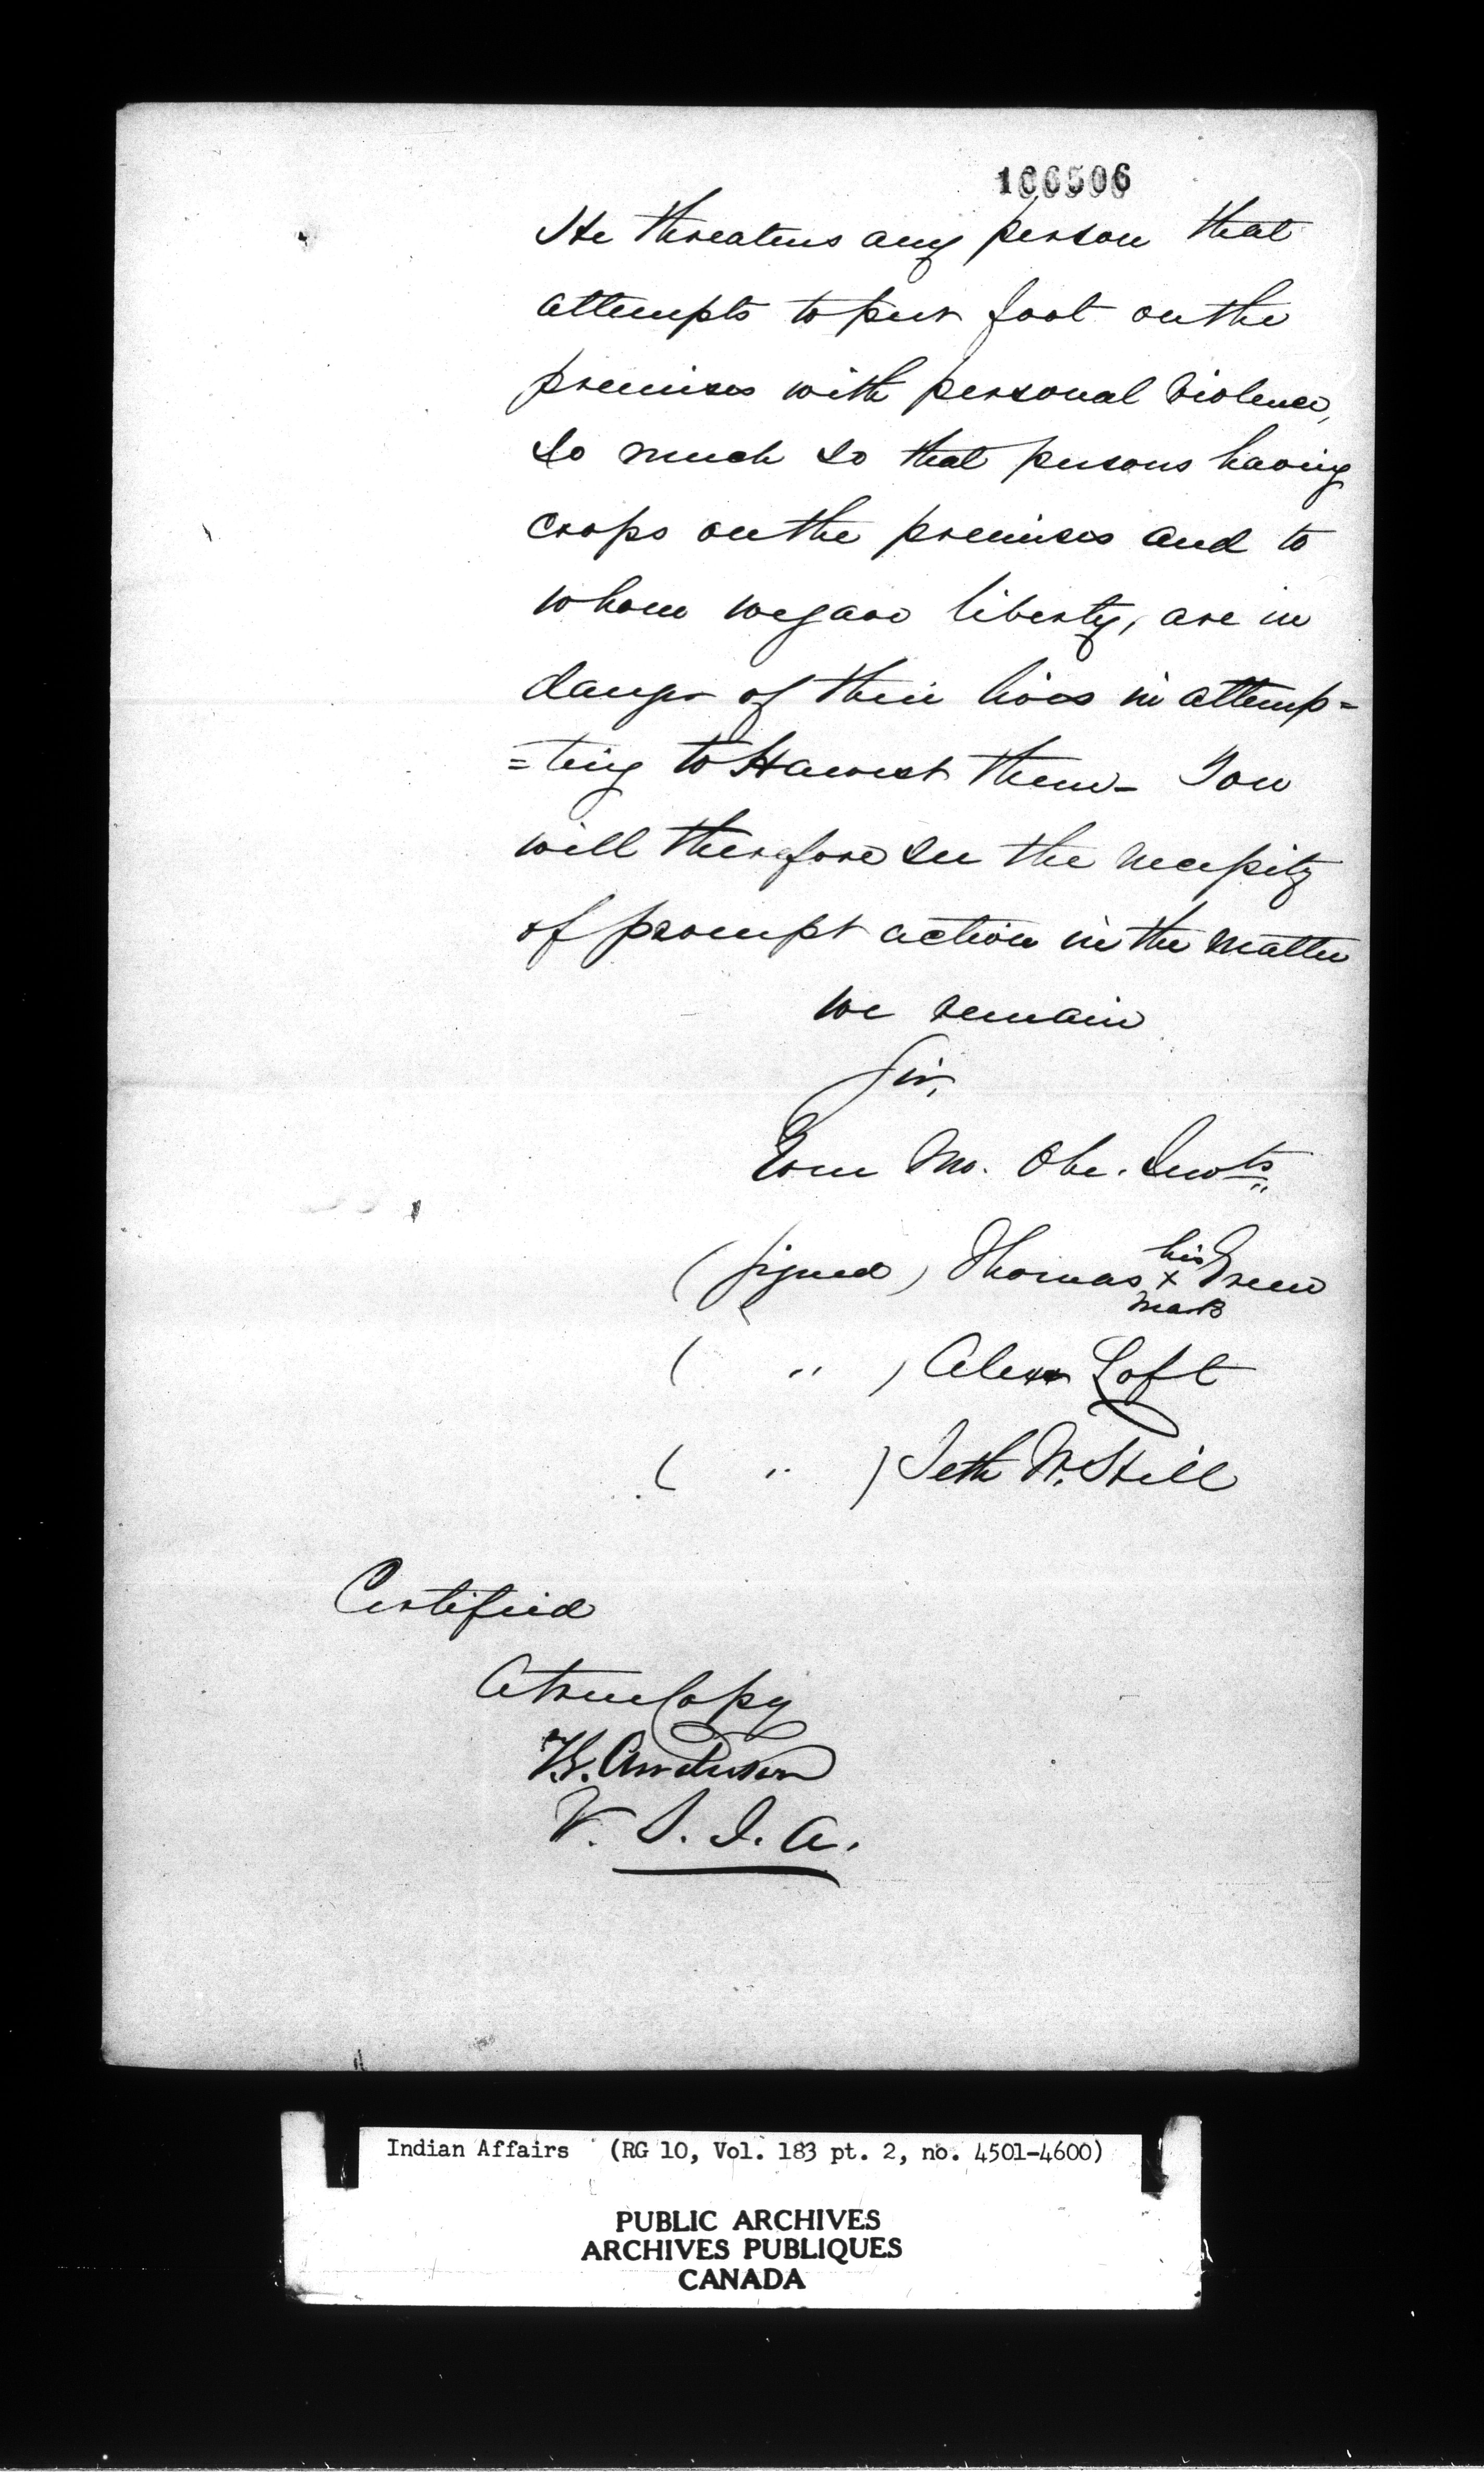 106506
He threatens any person that
attempts to put foot on the
premises with personal violence,
So much so that persons having
crops on the premises and to
whom we gave liberty, are in
danger of their lives in attemp=
=ting to Harvest them_ You
will therefore see the necessity
of prompt action in the matter
We remain
Sir,
Your Mo. Obe. Servts
(signed) Thomas his x mark Green
( " ) Alexr Loft
( " ) Seth W. Hill
Certified
A true Copy
Anderson
V. S. I. A.
Indian Affairs (RG 10, Vol. 183 pt. 2, no. 4501-4600)
PUBLIC ARCHIVES
ARCHIVES PUBLIQUES
CANADA